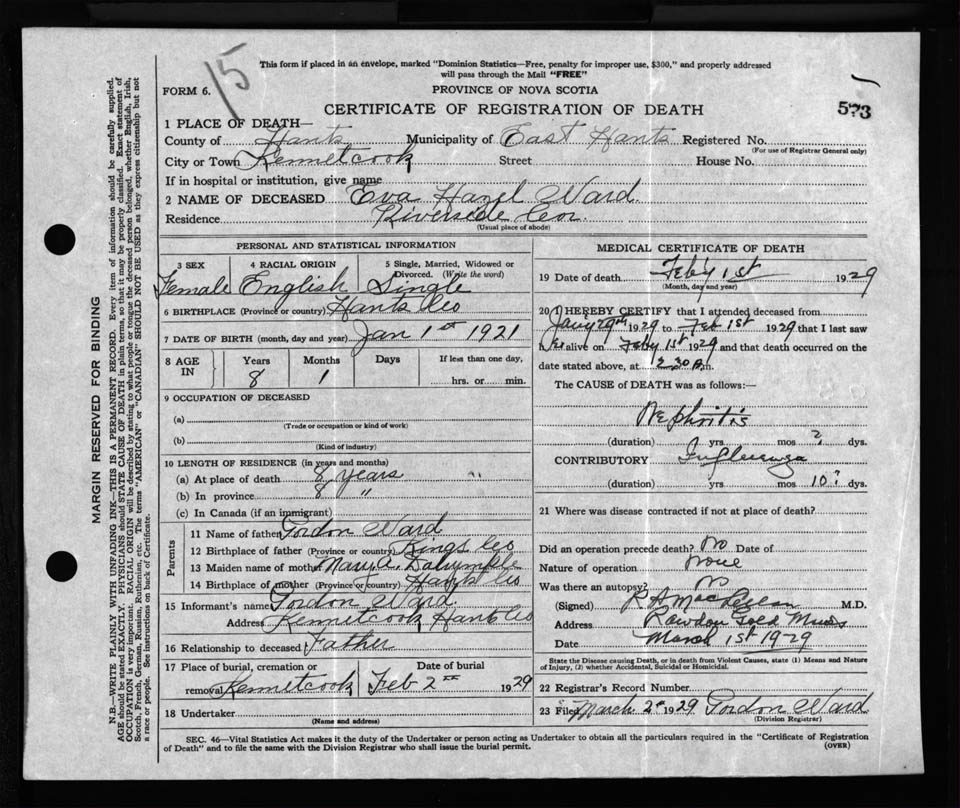 15
This form if placed in an envelope, marked "Dominion Statistics—Free, penalty for improper use, $300," and properly addressed
will pass through the Mail "FREE"
FORM 6.
PROVINCE OF NOVA SCOTIA
573
CERTIFICATE OF REGISTRATION OF DEATH
1 PLACE OF DEATH—
County of Hants Municipality of East Hants Registered No.
(For use of Registrar General only)
City or Town Kennetcook Street House No.
If in hospital or institution, give name
2 NAME OF DECEASED Eva Hazel Ward
Residence Riverside Cor.
(Usual place of abode)
PERSONAL AND STATISTICAL INFORMATION
3 SEX 4 RACIAL ORIGIN 5 Single, Married, Widowed or
Divorced. (Write the word)
Female English Single
6 BIRTHPLACE (Province or country) Hants Co
7 DATE OF BIRTH (month, day and year) Jan 1st 1921
8 AGE IN Years Months Days If less than one day,
8 1 hrs. or min.
9 OCCUPATION OF DECEASED
(a)
(Trade or occupation or kind of work)
(b)
(Kind of industry)
10 LENGTH OF RESIDENCE (in years and months)
(a) At place of death 8 years "
(b) In province 8 "
(c) In Canada (if an immigrant)
Parents
11 Name of father Gordon Ward
12 Birthplace of father (Province or country) Kings Co
13 Maiden name of mother Mary E. Dalrymple
14 Birthplace of mother (Province or country) Hants Co
15 Informant's name Gordon Ward
Address Kennetcook Hants Co
16 Relationship to deceased Father
17 Place of burial, cremation or Date of burial
removal Kennetcook Feb 2nd 1929
18 Undertaker
(Name and address)
MEDICAL CERTIFICATE OF DEATH
19 Date of death Feb'y 1st 1929
(Month, day and year)
20 I HEREBY CERTIFY that I attended deceased from
Jany 29th 1929 to Feb 1st 1929 that I last saw
her alive on Feby 1st 1929 and that death occurred on the
date stated above, at 2.30 p.m.
The CAUSE OF DEATH was as follows:—
Nephritis
(duration) yrs. mos ? dys.
CONTRIBUTORY Influenza
(duration) yrs. mos 10? dys.
21 Where was disease contracted if not at place of death?
Did an operation precede death? No Date of
Nature of operation None
Was there an autopsy? No
(Signed) R A MacLellan M.D.
Address Rawdon Gold Mines
Date March 1st 1929
State the Disease causing Death, or in death from Violent Causes, state (1) Means and Nature
of Injury, (2) whether Accidental, Suicidal or Homicidal.
22 Registrar's Record Number
23 Filed March 2nd 1929 Gordon Ward
(Division Registrar)
SEC. 46—Vital Statistics Act makes it the duty of the Undertaker or person acting as Undertaker to obtain all the particulars required in the "Certificate of Registration
of Death" and to file the same with the Division Registrar who shall issue the burial permit.
(OVER)
MARGIN RESERVED FOR BINDING
N.B.—WRITE PLAINLY WITH UNFADING INK—THIS IS A PERMANENT RECORD. Every item of information should be carefully supplied.
AGE should be stated EXACTLY. PHYSICIANS should STATE CAUSE OF DEATH in plain terms, so that it may be properly classified. Exact statement of
OCCUPATION is very important. RACIAL ORIGIN will be described by stating to what people or tongue the deceased person belonged, whether English, Irish,
Scotch, French, German, Russian, Ruthenian, etc. The terms "AMERICAN" or "CANADIAN" SHOULD NOT BE USED as they express citizenship but not
a race or people. See instructions on back of Certificate.